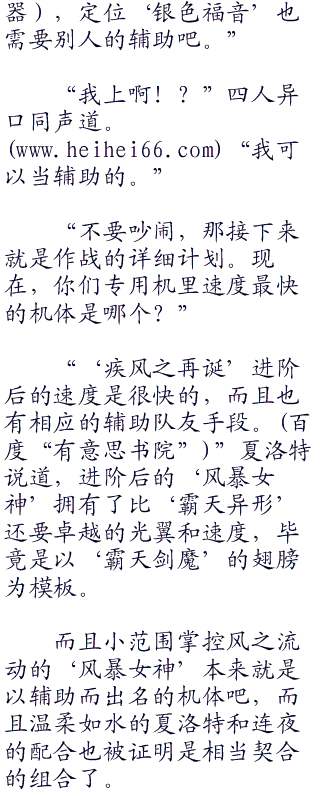 器），定位‘银色福音’也
需要别人的辅助吧。”
“我上啊！？”四人异
口同声道。
(www.heihei66.com)“我可
以当辅助的。”
“不要吵闹，那接下来
就是作战的详细计划。现
在，你们专用机里速度最快
的机体是哪个？”
“‘疾风之再诞’进阶
后的速度是很快的，而且也
有相应的辅助队友手段。(百
度“有意思书院”)”夏洛特
说道，进阶后的‘风暴女
神’拥有了比‘霸天异形’
还要卓越的光翼和速度，毕
竟是以‘霸天剑魔’的翅膀
为模板。
而且小范围掌控风之流
动的‘风暴女神’本来就是
以辅助而出名的机体吧，而
且温柔如水的夏洛特和连夜
的配合也被证明是相当契合
的组合了。